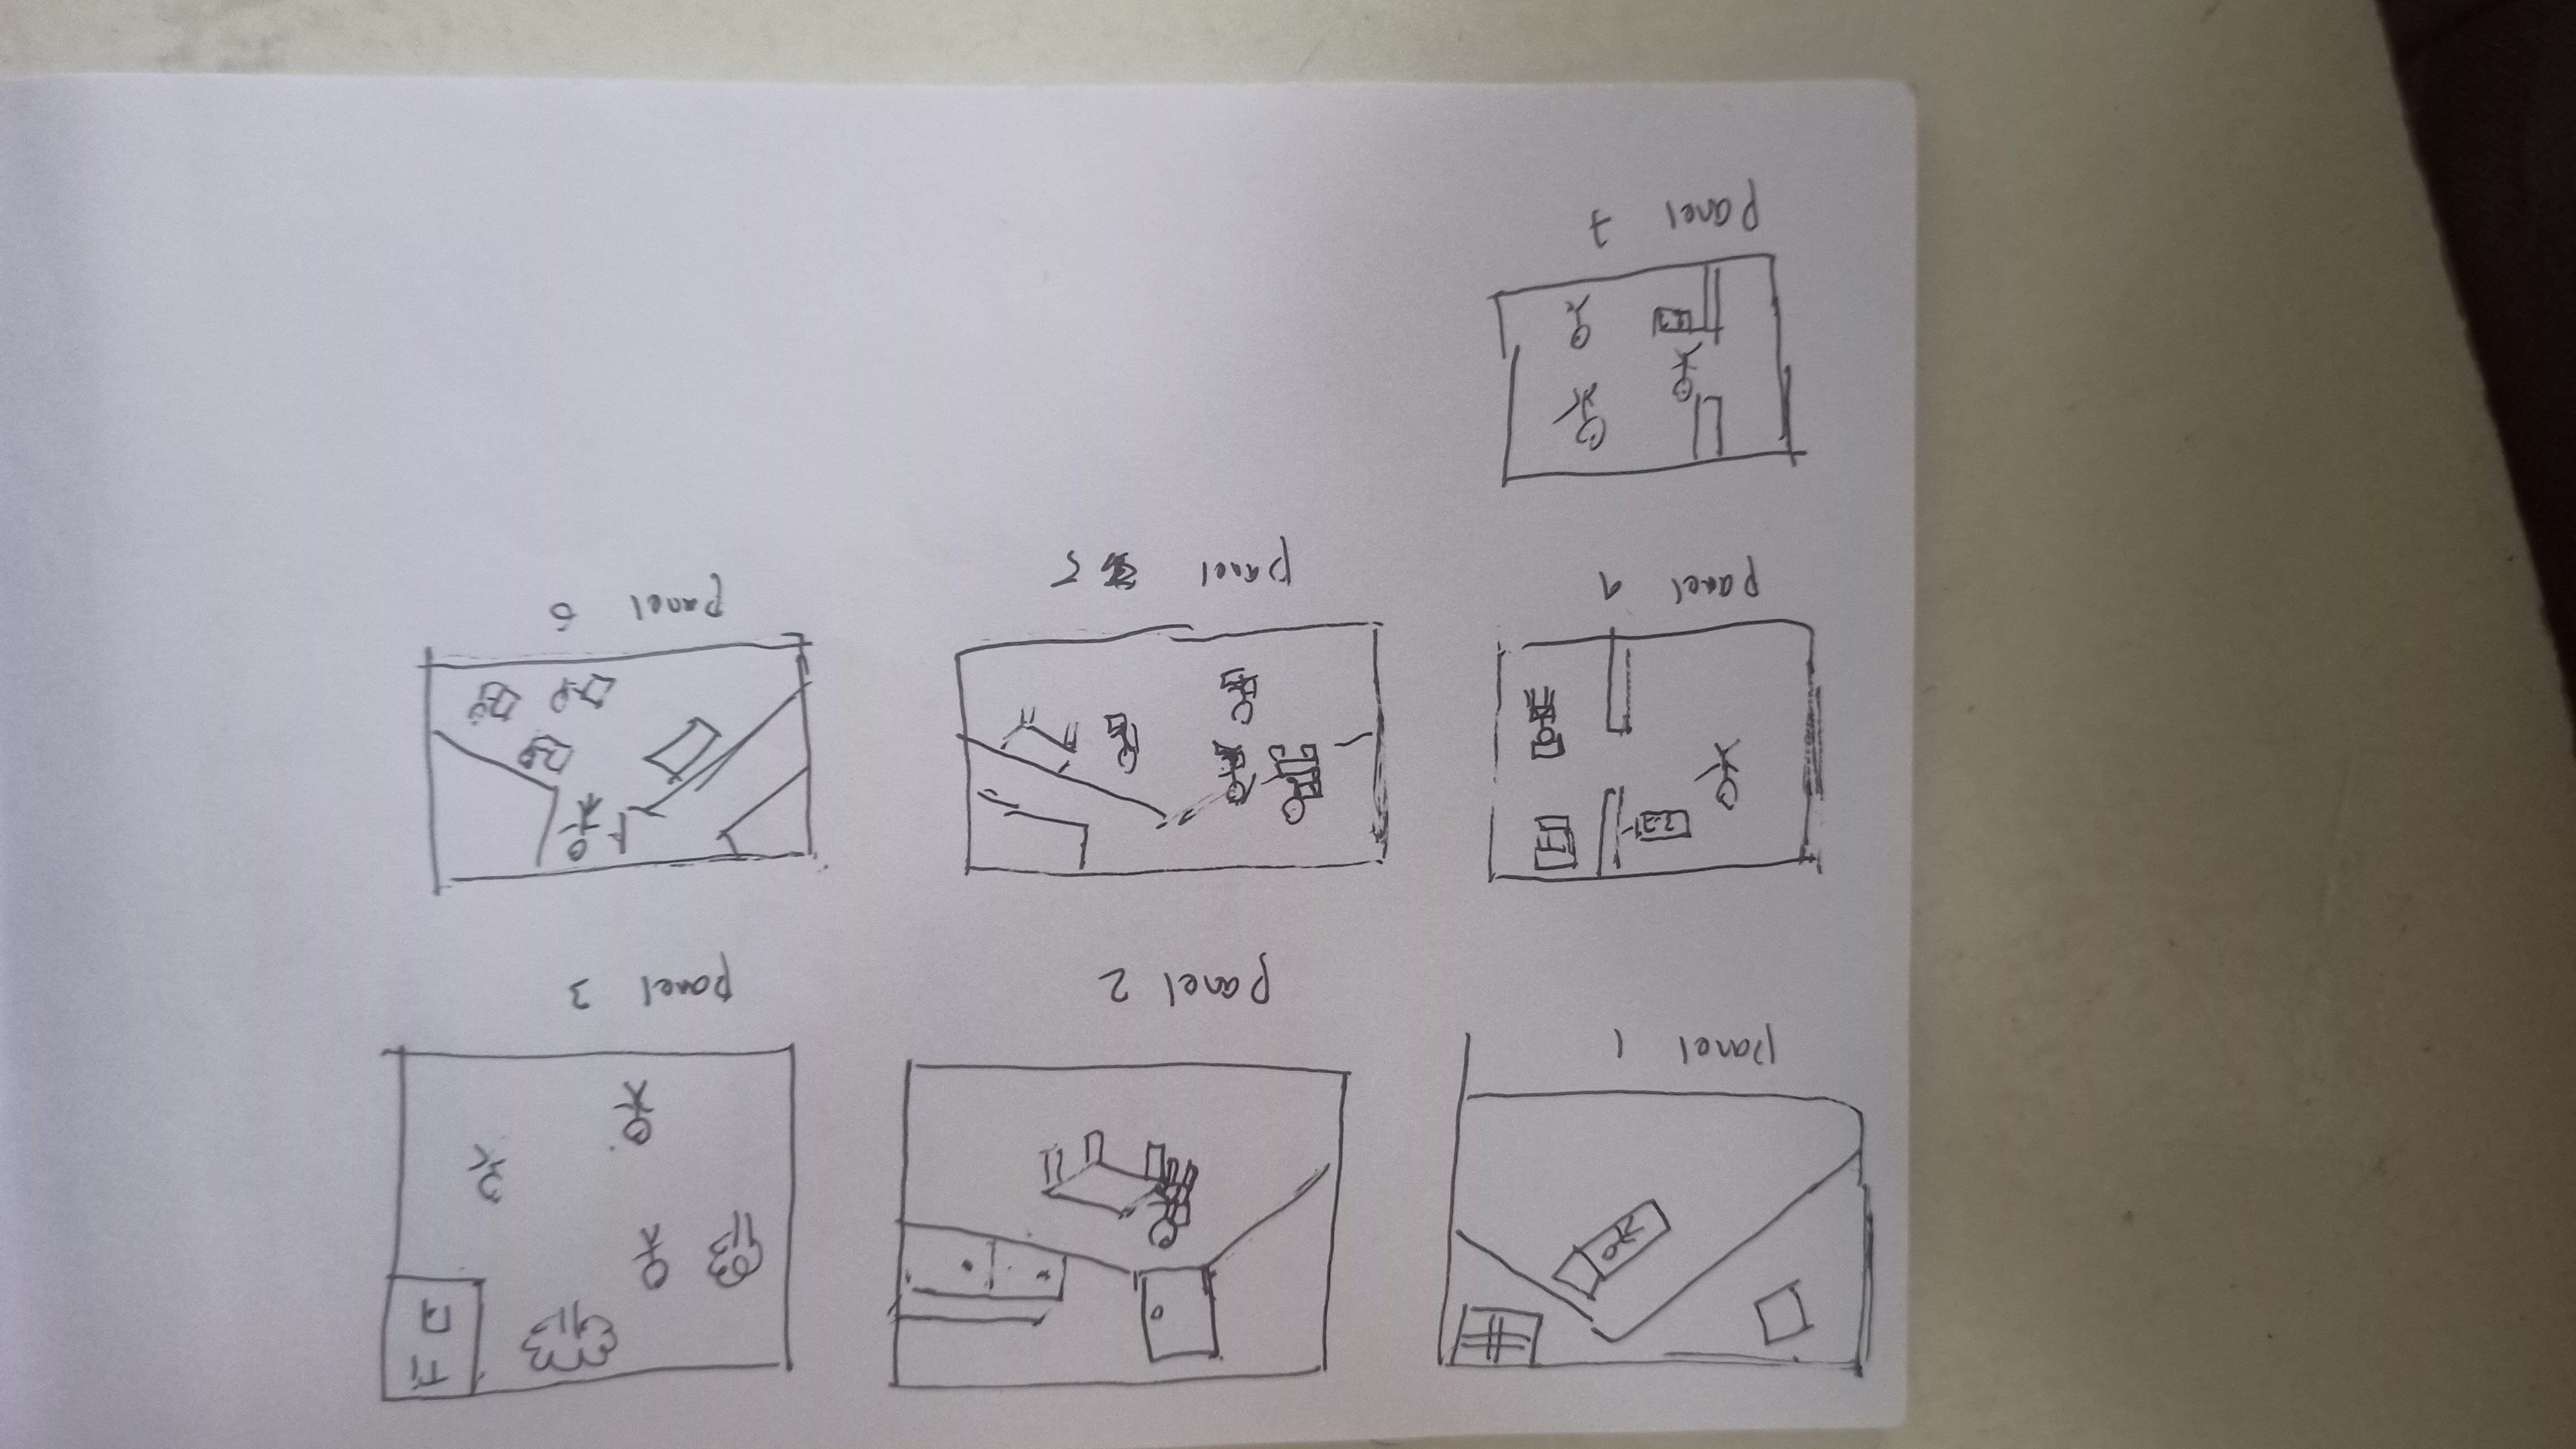 panel 1
panel 2
panel 3
panel 4
panel 5
panel 6
panel 7